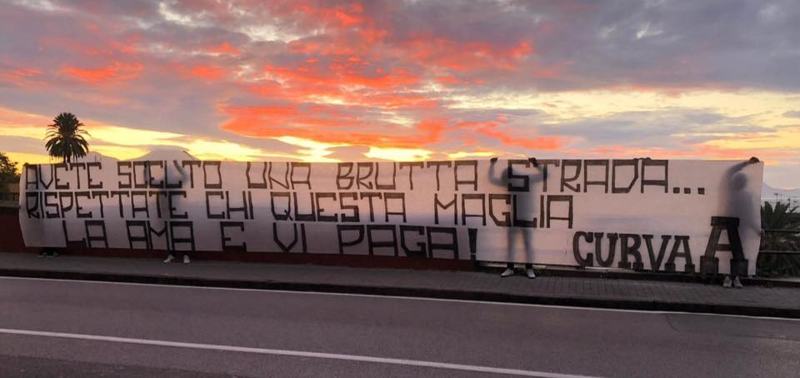 AVETE SCELTO UNA BRUTTA STRADA...
RISPETTATE CHI QUESTA MAGLIA
LA AMA E VI PAGA!
CURVA A